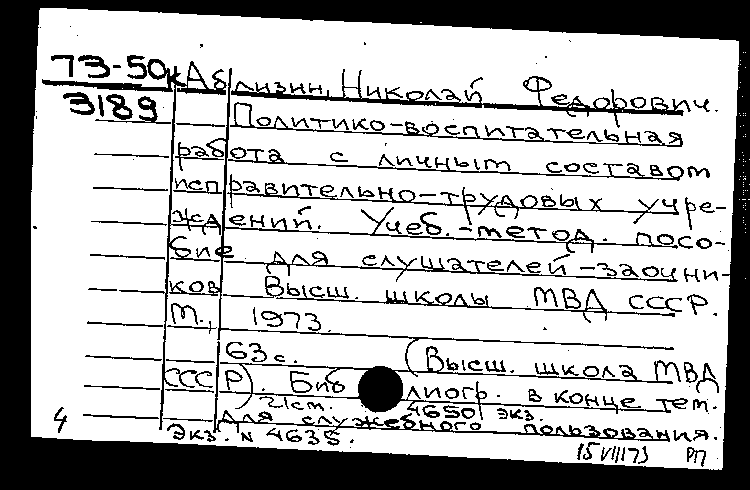 73-50к Аблизин, Николай Федорович.
3189 Политико-воспитательная
работа с личным составом
исправительно-трудовых учре-
ждений. Учеб.-метод. посо-
бие для слушателей-заочни-
ков Высш. школы МВД СССР.
М., 1973.
63 с. (Высш. школа МВД
СССР). Библиогр. в конце тем.
21 см. 4650 экз.
4 Для служебного пользования.
Экз. N 4635.
15 VIII 73 РП